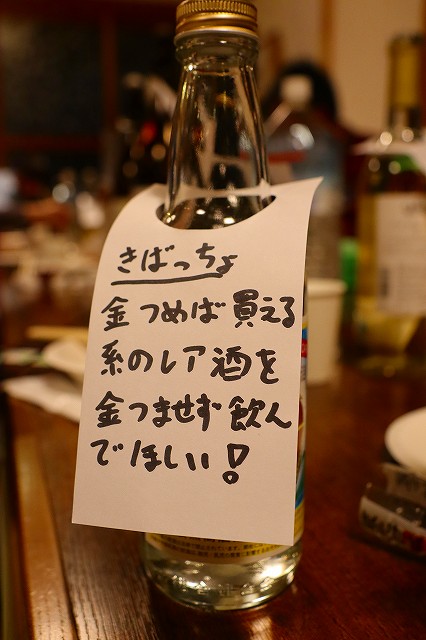 きばっちょ
金つめば買える
系のレア酒を
金つませず飲ん
でほしい!